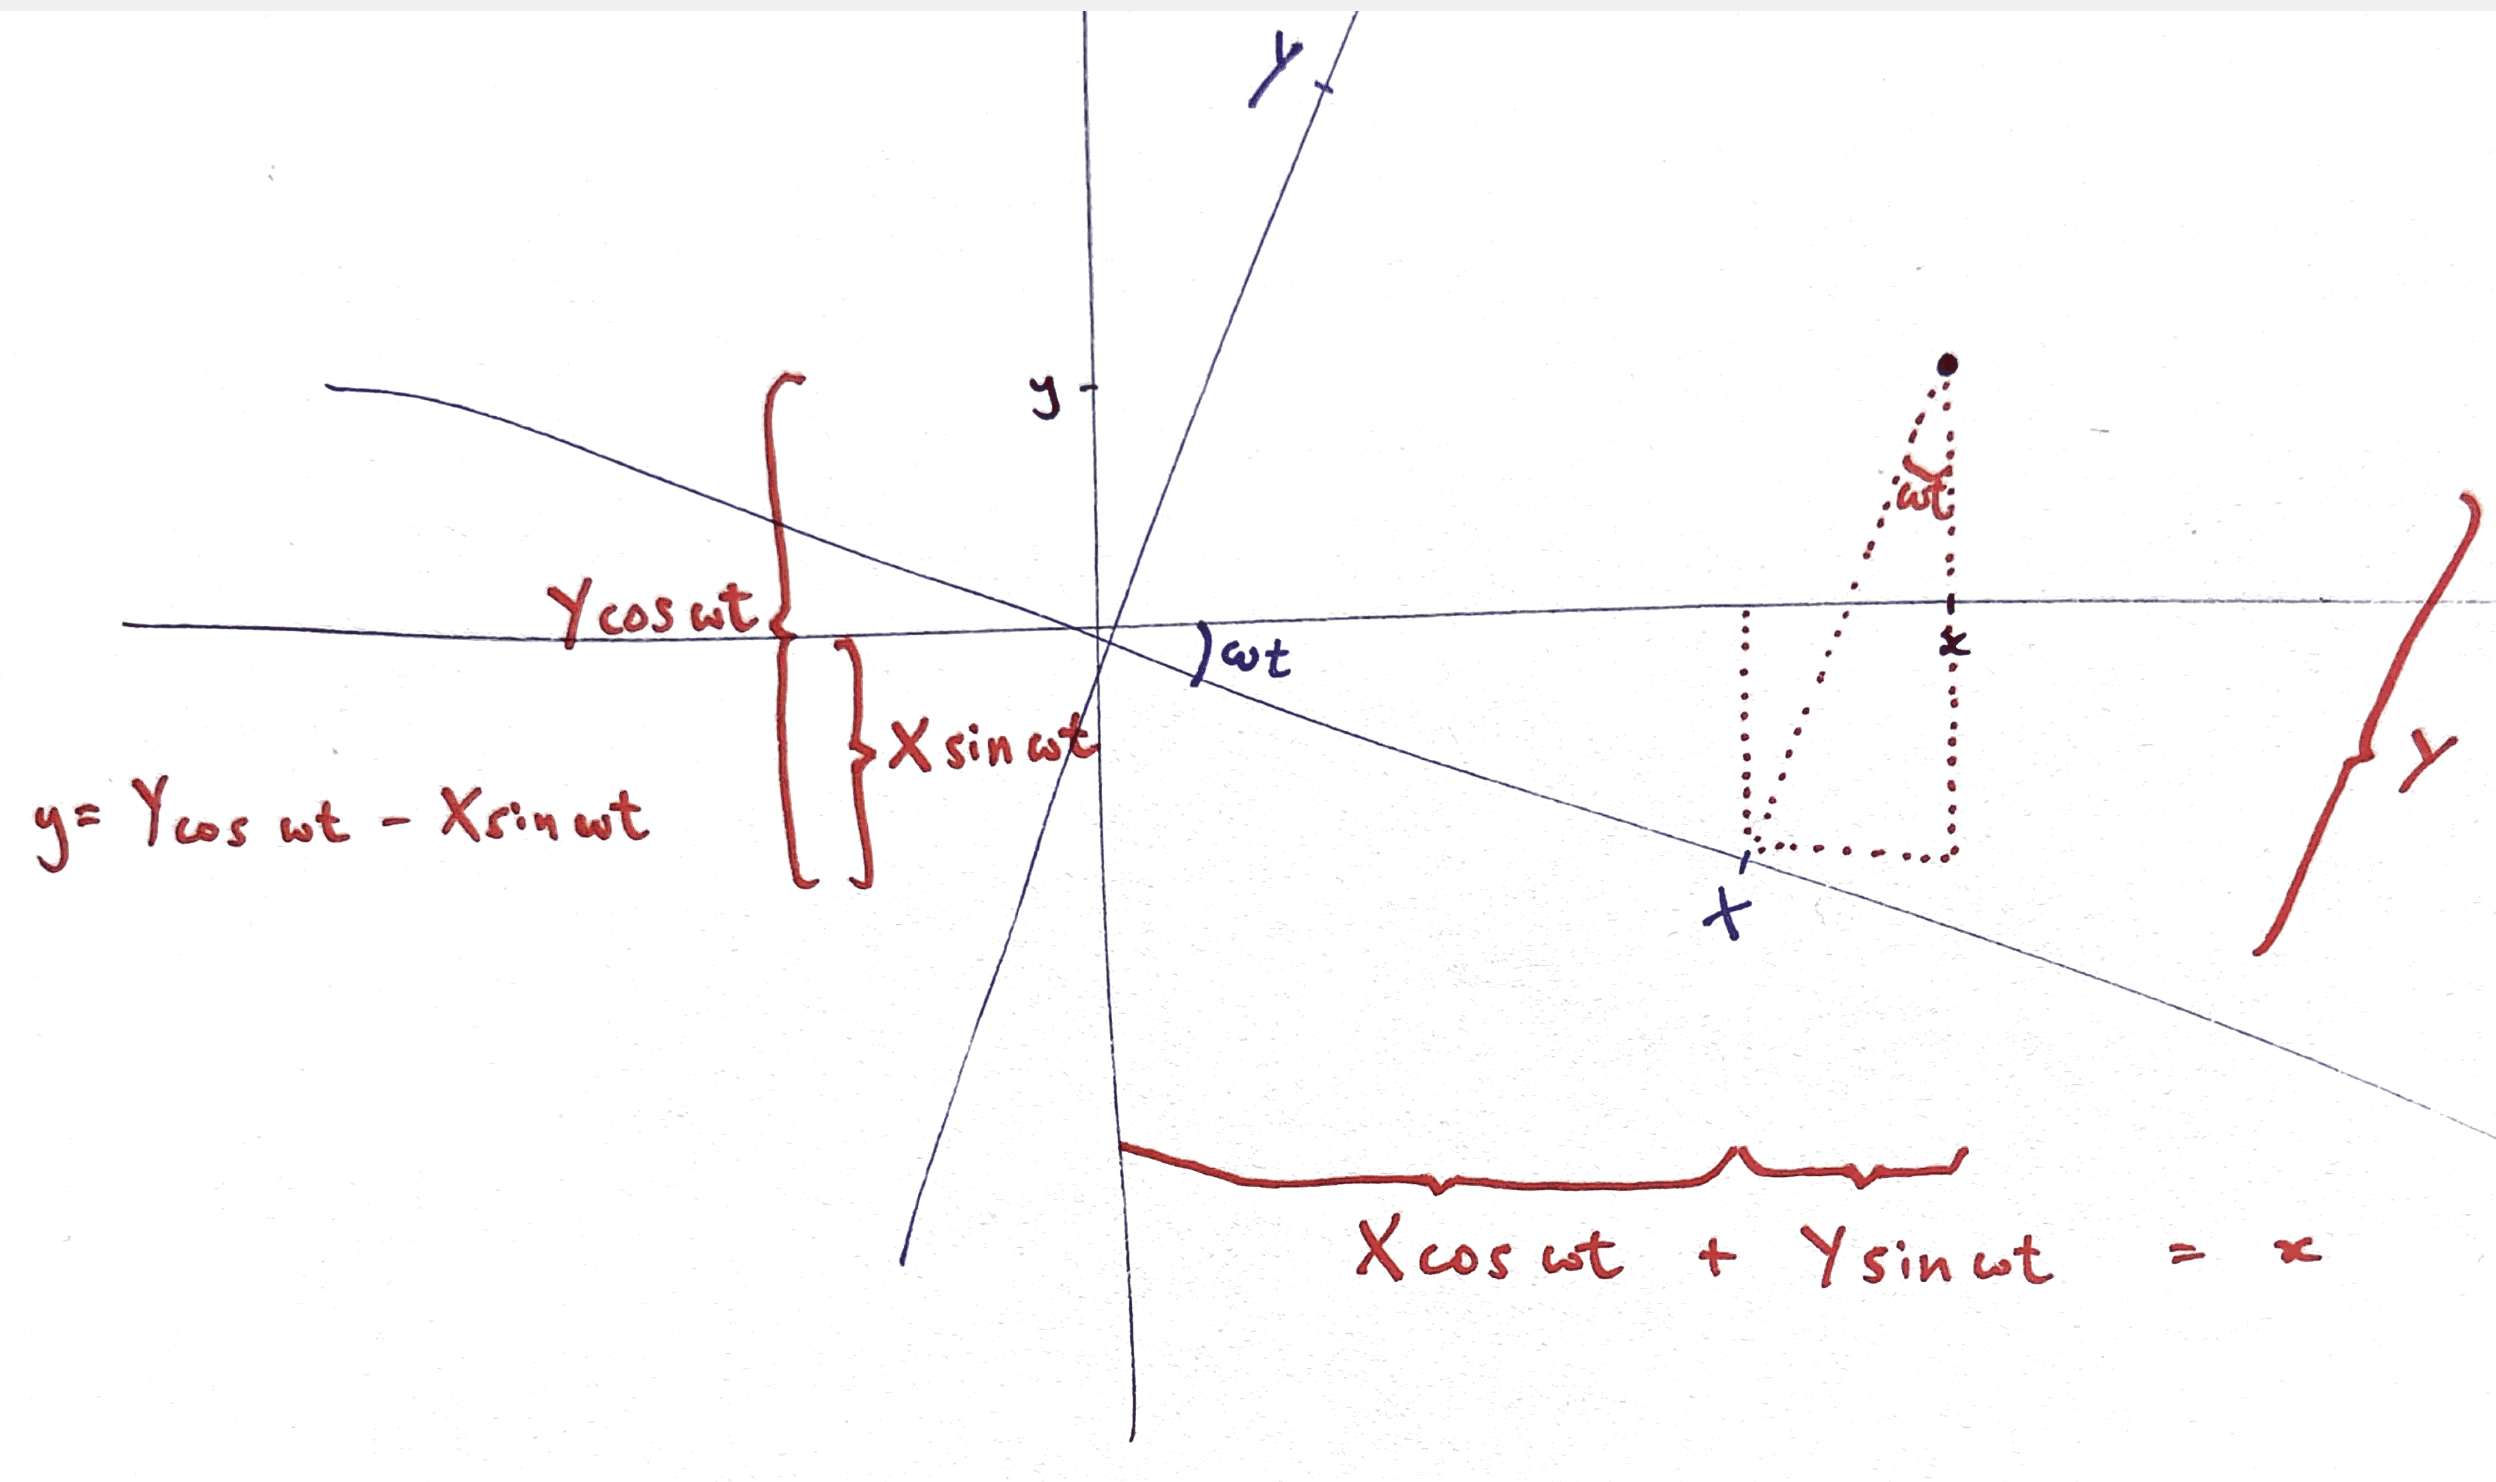 Y
y
ωt
Y cos ωt
ωt
x
X sin ωt
Y
y = Y cos ωt - X sin ωt
X
X cos ωt + Y sin ωt = x